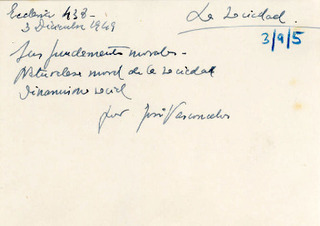 Ecclesia 438-
3 Diciembre 1949
La Sociedad.
3/9/5
Sus fundamentos morales-
Naturaleza moral de la sociedad
Dinamismo social
por José Vasconcelos